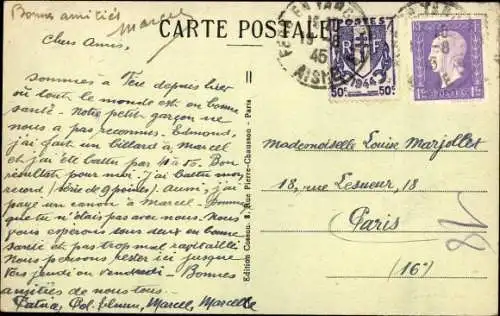 Bonnes amitiés
Marcel
CARTE POSTALE
Chers Amis,
sommes à Fère depuis hier
où tout le monde est en bonne
santé. Notre petit garçon ne
nous a pas reconnus. Edmond,
j'ai fait un billard à Marcel
et j'ai été battu par à Bon
résultat pour moi. J'ai battu mon
record (série de 9 points). Aussi, j'ai
payé un canon à Marcel.
que tu n'étais pas avec nous. Nous
vous espérons tous deux en bonne
santé et pas trop mal ravitaillé
Nous pensons rester ici jusque
vers jeudi ou vendredi - Bonnes
amitiés de nous tous.
Marcel, Marcelle
Edition Cossou, 8, Rue Pierre-Chausson - Paris
FERE EN TARD
45
AISNE
POSTES
RF
50c 1944 50c
Mademoiselle Louise Marjollet
18, rue Lesueur, 18
Paris
(16e)